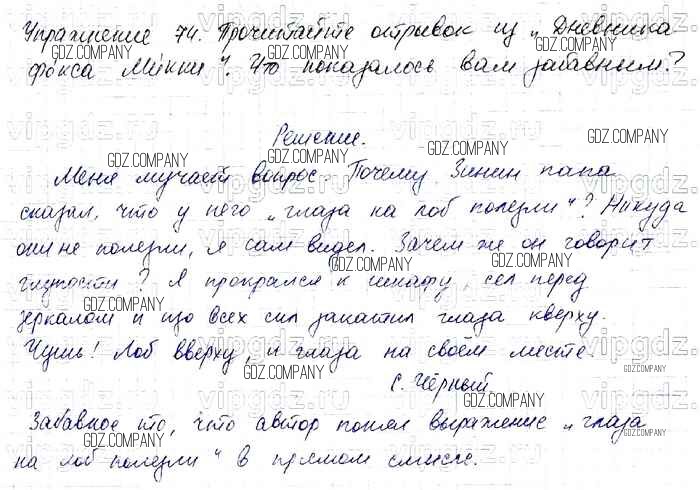 Упражнение 74. Прочитайте отрывок из „Дневника
фокса Микки“. Что показалось вам забавным?
Решение.
Меня мучает вопрос. Почему Зинин папа
сказал, что у него „глаза на лоб полезли“? Никуда
они не полезли, я сам видел. Зачем же он говорит
глупости? Я прокрался к шкафу, сел перед
зеркалом и изо всех сил закатил глаза кверху.
Чушь! Лоб вверху, и глаза на своём месте.
С. Чёрный.
Забавное то, что автор понял выражение „глаза
на лоб полезли“ в прямом смысле.